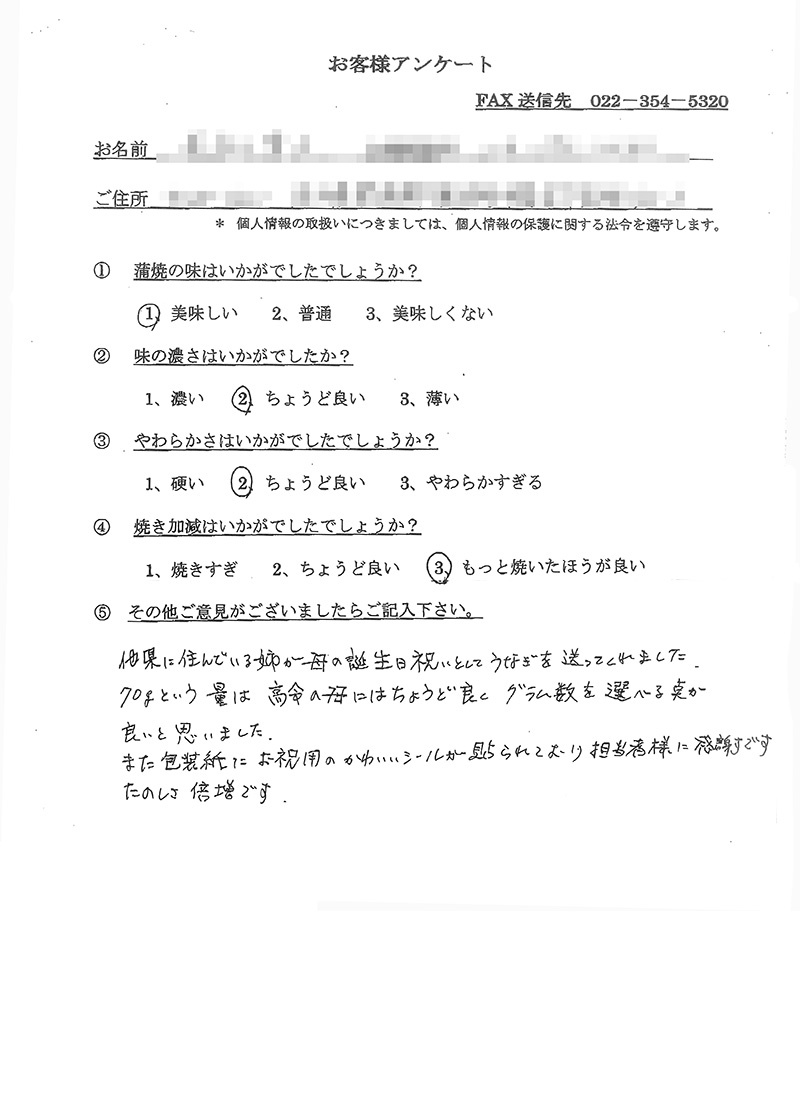 お客様アンケート
FAX送信先 022-354-5320
お名前
ご住所
* 個人情報の取扱いにつきましては、個人情報の保護に関する法令を遵守します。
① 蒲焼の味はいかがでしたでしょうか?
1、美味しい 2、普通 3、美味しくない
② 味の濃さはいかがでしたか?
1、濃い 2、ちょうど良い 3、薄い
③ やわらかさはいかがでしたでしょうか?
1、硬い 2、ちょうど良い 3、やわらかすぎる
④ 焼き加減はいかがでしたでしょうか?
1、焼きすぎ 2、ちょうど良い 3、もっと焼いたほうが良い
⑤ その他ご意見がございましたらご記入下さい。
他県に住んでいる姉が母の誕生日祝いとしてうなぎを送ってくれました.
70gという量は高令の母にはちょうど良くグラム数を選べる点が
良いと思いました.
また包装紙にお祝用のかわいいシールが貼られており担当者様に感謝です
たのしさ倍増です.